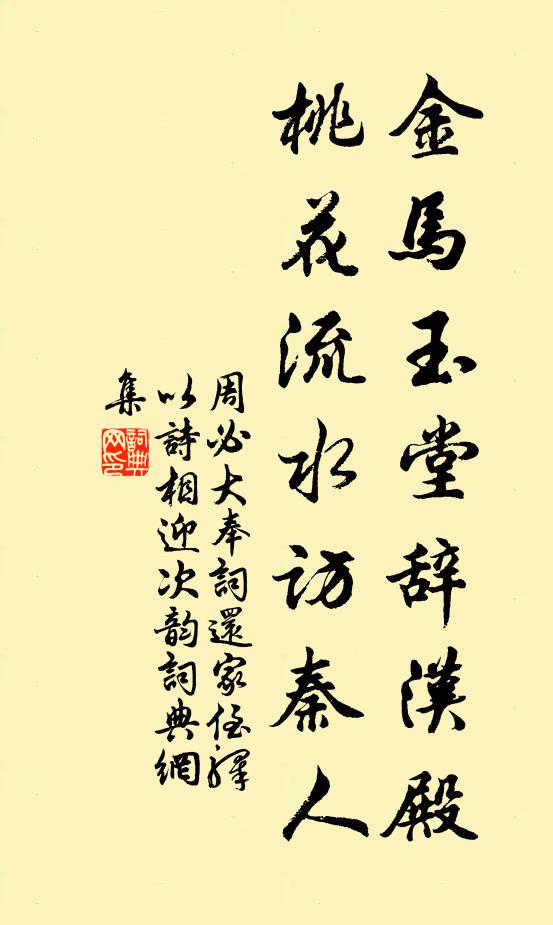 金馬玉堂辞漢殿
桃花流水访秦人
周必大奉詞還家侄釋
以詩相迎次韵詞典網
集
詞典網印